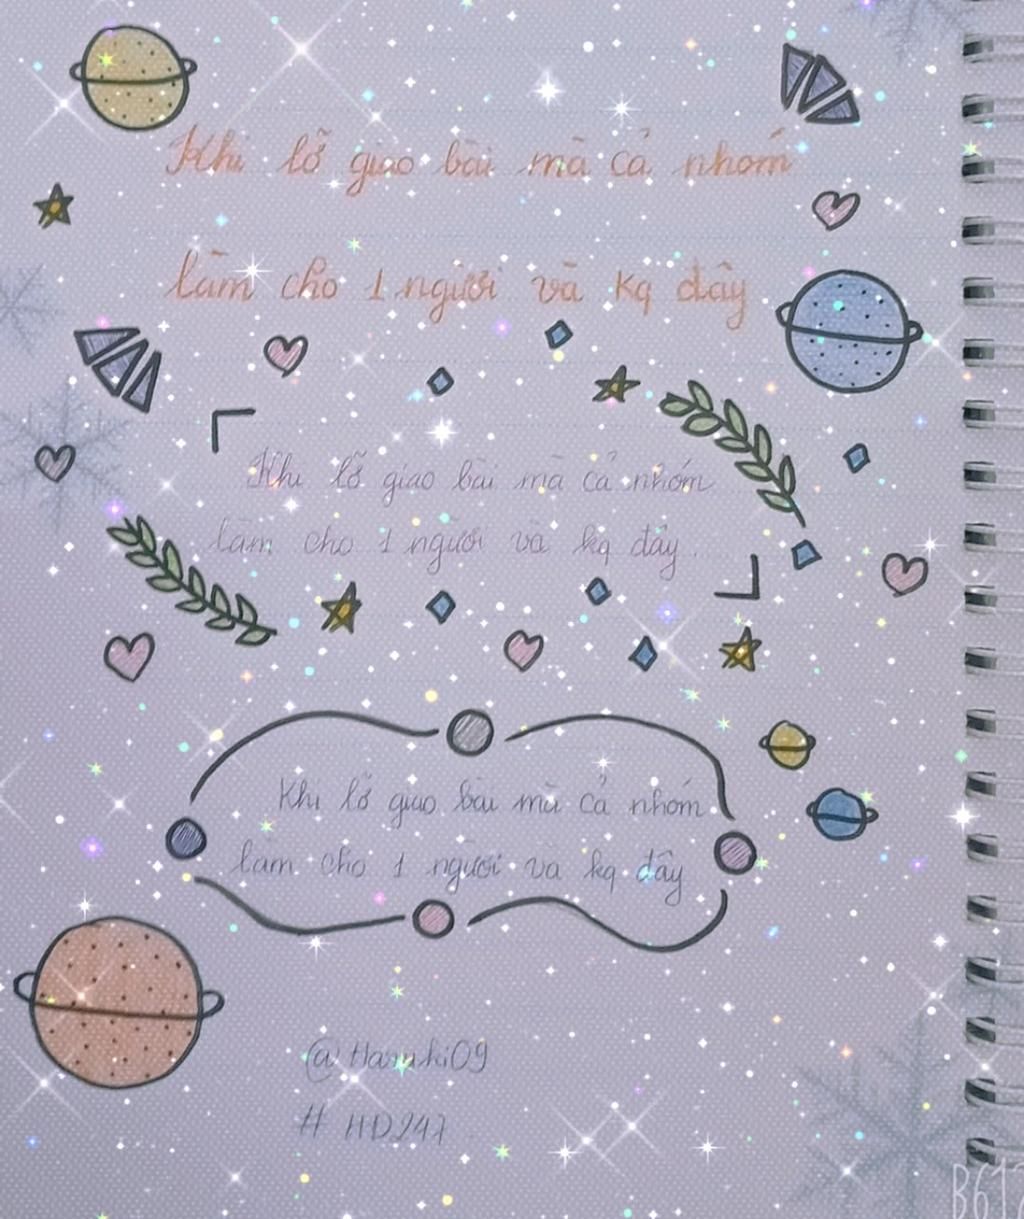 Khi lỡ giao bài mà cả nhóm
làm cho 1 người và kq đây
Khi lỡ giao bài mà cả nhóm
làm cho 1 người và kq đây.
Khi lỡ giao bài mà cả nhóm
làm cho 1 người và kq đây
@Haruki09
# HD247
B612